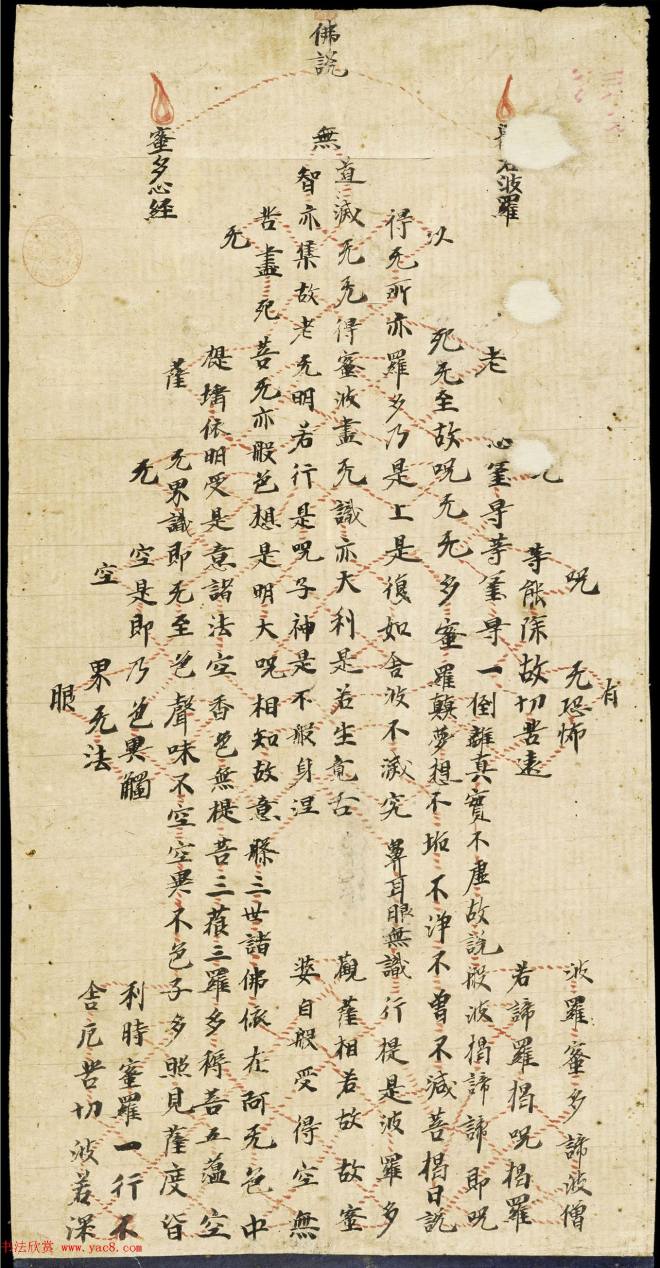 佛説
若波羅
蜜多心經
有
呪
无恐怖
波羅蜜多諦波僧
等能除故切苦遠
若諦羅揭呪揭羅
老
心蜜㝵等蜜㝵一倒離真實不虛故説般波揭諦諦即呪
以
死无至故呪无无多蜜羅顛夢想不垢不浄不曾不減菩揭曰説
得无所亦羅多乃是上是復如舍波不滅究鼻耳眼無識行提是波羅多
道滅无无得蜜波盡无識亦大利是若生竟舌
觀薩相若故故蜜
無
智亦集故老无明若行是呪子神是不般身涅
婆自般受得空無
苦盡死菩无亦般色想是明大呪相知故意
三世諸佛依在阿无色中
无
提埵依明受是意諸法空香色無提菩三藐三羅多稱菩五蘊空
薩
无界識即无至色聲味不空空異不色子多照見薩度皆
无
空是即乃色異觸
利時蜜羅一行不
空
界无法
舍厄苦切波若深
眼
书法欣赏 www.yac8.com